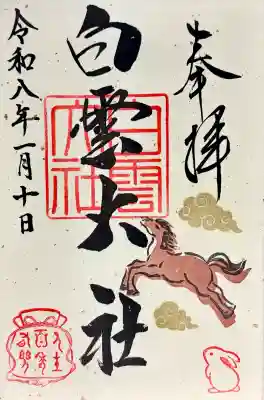 奉拝
白雲大社
白雲大社
令和八年一月十日